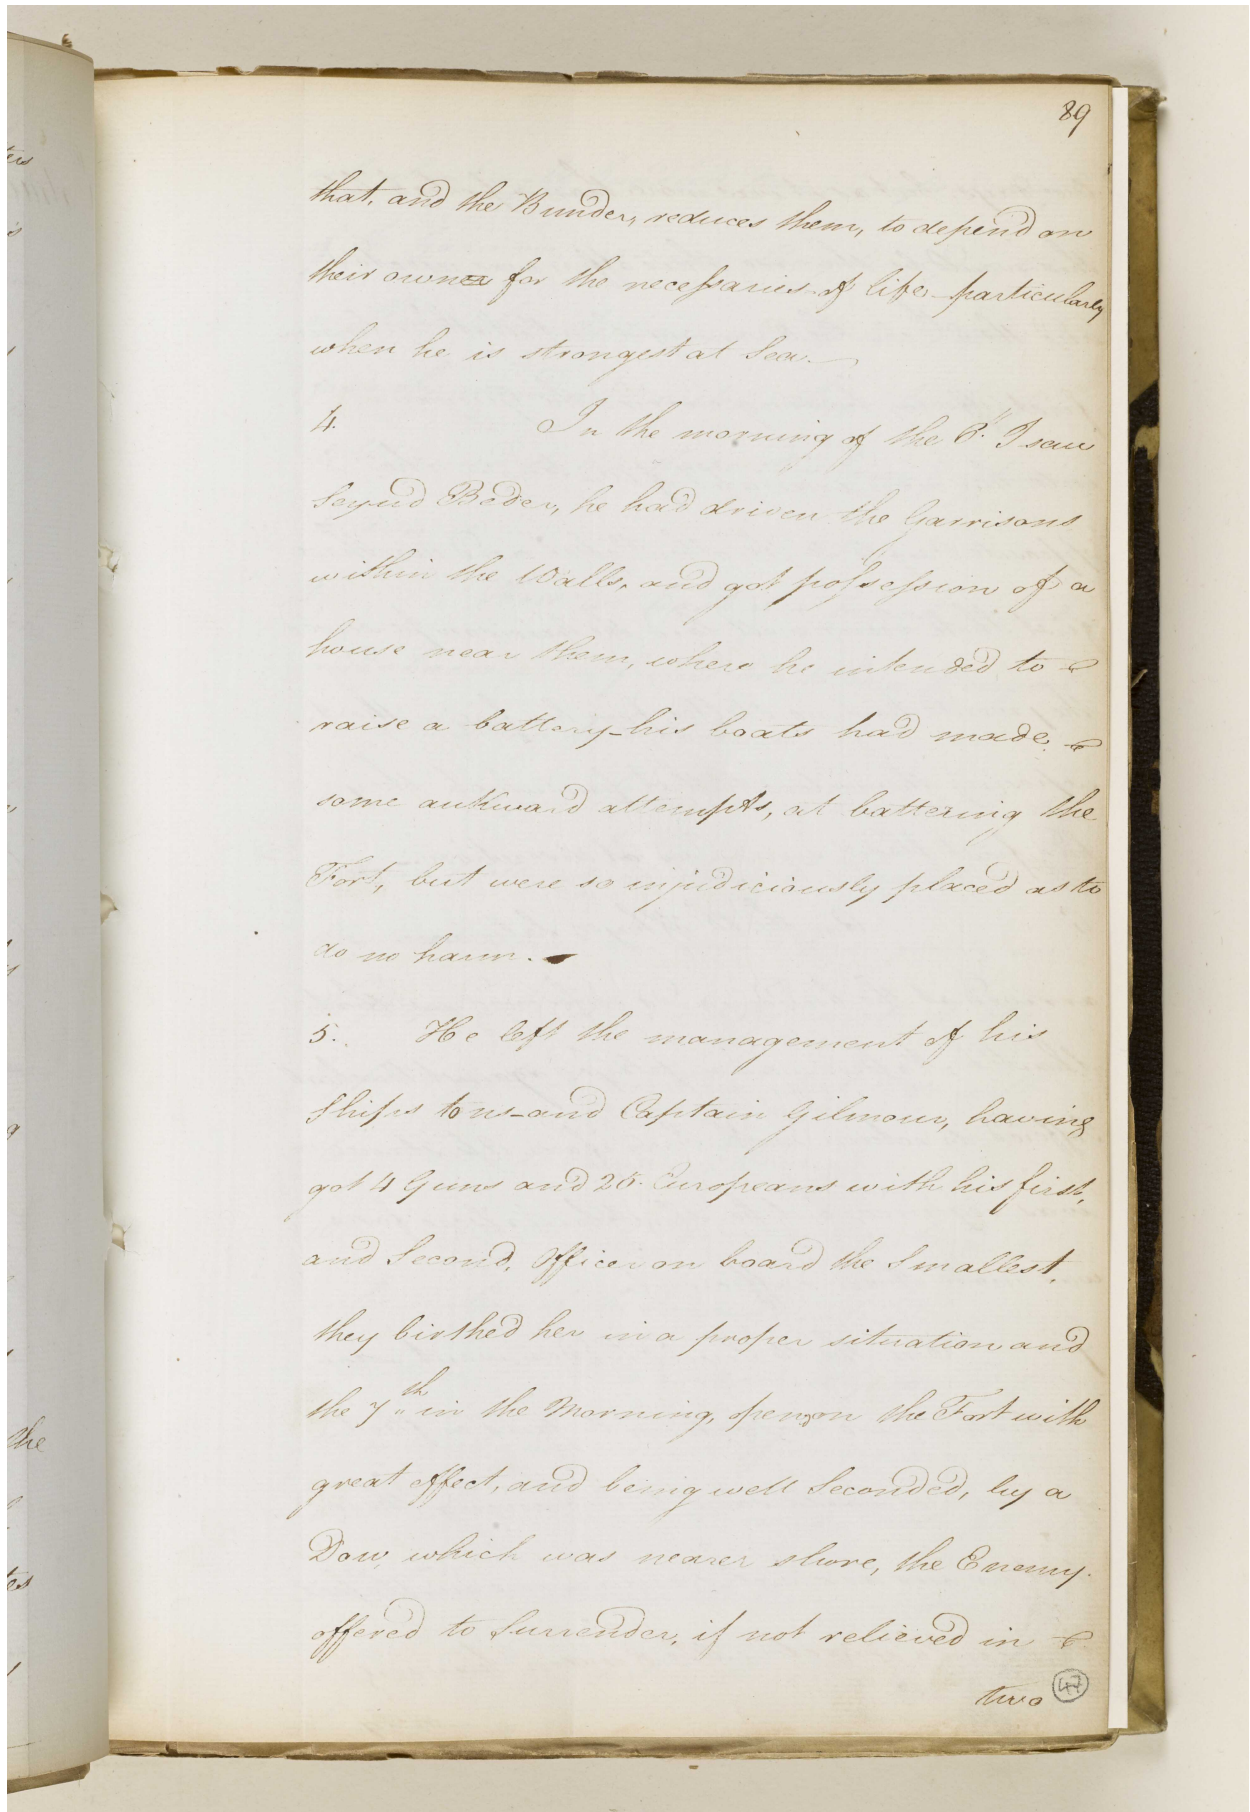 89
that, and the Bunder, reduces them, to depend on
their own for the necessaries of life particularly
when he is strongest at Sea.
4. In the morning of the I saw
Seyud Beder, he had driven the Garrisons
within the Walls, and got possession of a
house near them, where he intended to
raise a battery _ his boats had made
some aukward attempts, at battering the
Fort, but were so injudiciously placed as to
do no harm.
5. He left the management of his
Ships to us _ and Captain Gilmour, having
got 4 Guns and 25 Europeans with his first,
and Second, Officer on board the Smallest,
they birthed her in a proper situation and
the 7th in the Morning, open'd on the Fort with
great effect, and being well Seconded, by a
Dow, which was nearer shore, the Enemy
offered to Surrender, if not relieved in
two
47
the